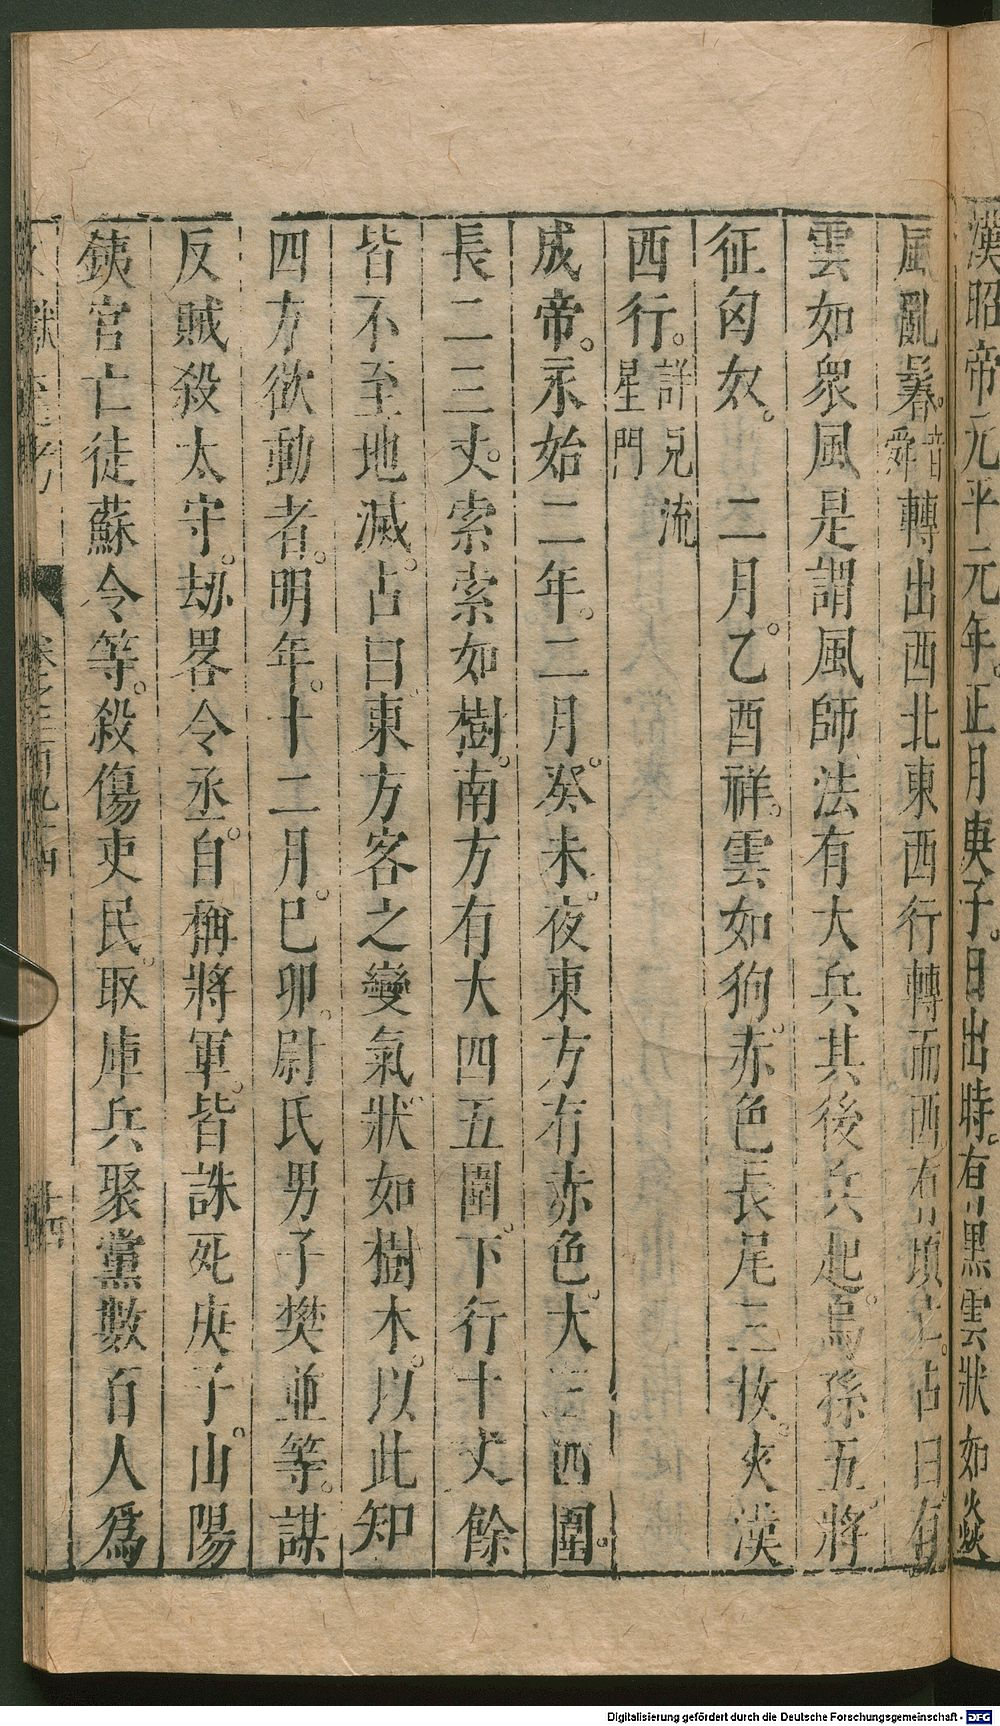 漢昭帝元平元年。正月庚子。日出時。有黑雲狀如焱
風亂鬊。音舜轉出西北東西行轉而西有頃亡。占曰。有
雲如衆風是謂風師法有大兵其後兵起。烏孫五將
征匈奴。二月。乙酉祥。雲如狗。赤色長尾三枚。夾漢
西行。詳見流星門
成帝。永始二年。二月。癸未。夜東方有赤色。大三四圍。
長二三丈。索索如樹。南方有大四五圍。下行十丈餘
皆不至地滅。占曰東方客之變氣狀如樹木。以此知
四方欲動者。明年。十二月。巳卯。尉氏男子樊並等。謀
反賊殺太守。劫畧令丞。自稱將軍。皆誅死庚子。山陽
鐵官亡徒蘇令等。殺傷吏民。取庫兵聚黨數百人爲
文獻通考 卷之二百九十四 十四
Digitalisierung gefördert durch die Deutsche Forschungsgemeinschaft - DFG